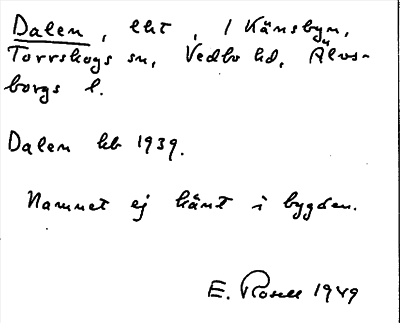 Dalen, lht, / Känsbyn,
Torrskogs sn, Vedbo hd, Älvs-
borgs l.
Dalen kb 1939.
Namnet ej känt i bygden.
E. Rosell 1949